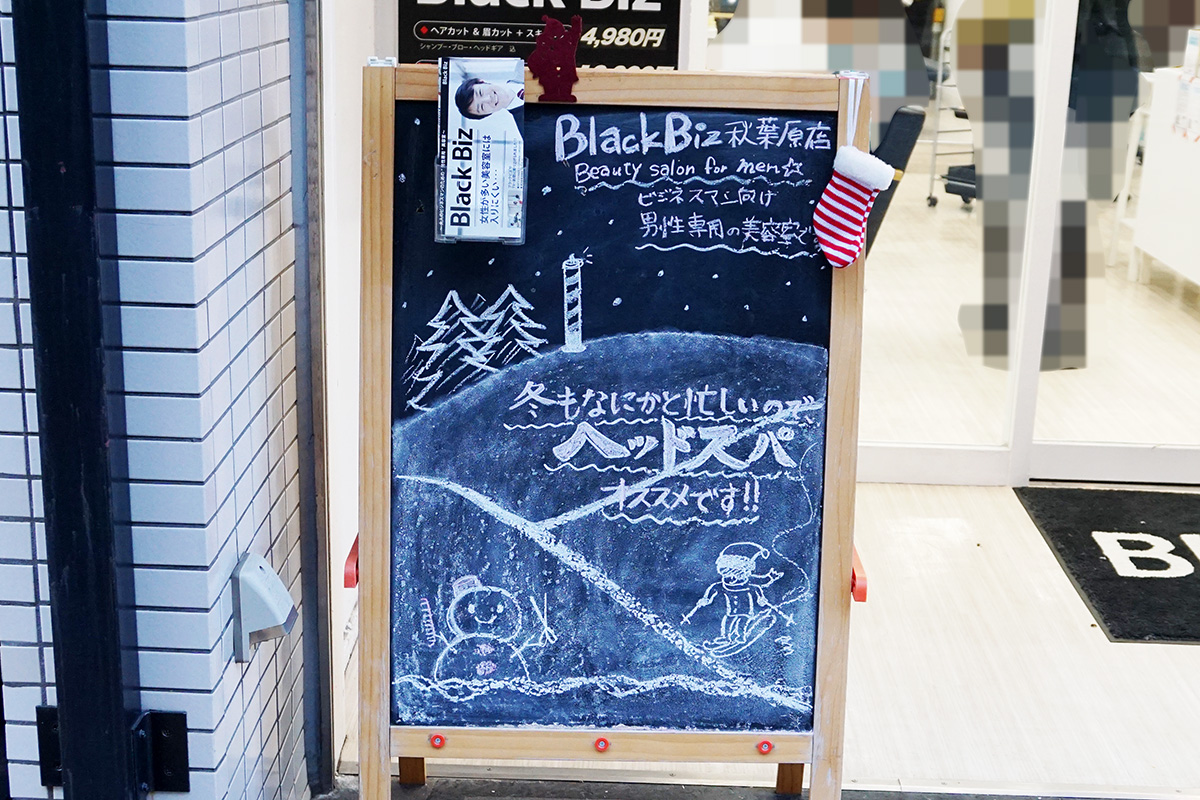 Black Biz
ヘアカット & 眉カット + スキ
4,980円
シャンプー・ブロー・ヘッドギア 込
Black Biz
Black Biz
女性が多い美容室には
入りにくい・・・
BlackBiz 秋葉原店
Beauty salon for men☆
ビジネスマン向け
男性専用の美容室で
冬もなにかと忙しいので
ヘッドスパ
オススメです!!
B